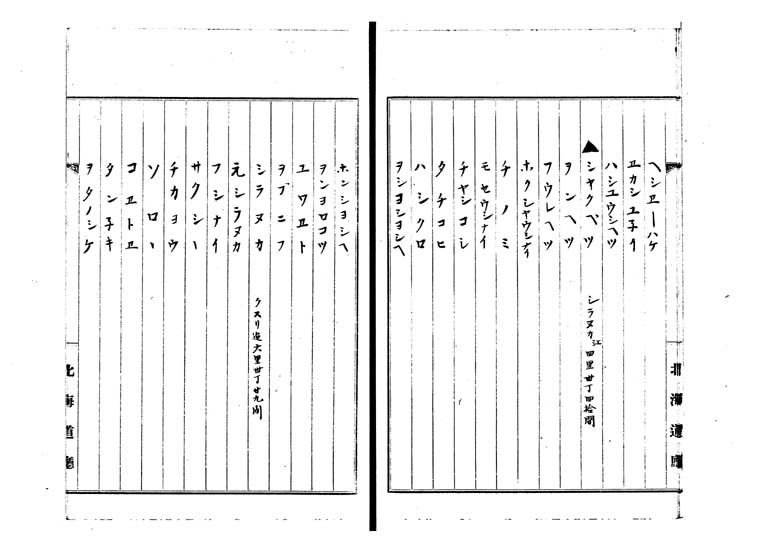 ヘシヱーハケ
ヱカシユ子イ
ハシユウシヘツ
▲シヤクベツ シラヌカ江四里丗丁四拾間
ヲンヘツ
フウレヘツ
ホクシヤウシナイ
チノミ
モセウシナイ
チヤシコシ
タチコヒ
ハシクロ
ヲショシヨシヘ
北海道廳
ホンシヨシヘ
ヲンヨロコツ
ユワヱト
ヲフニフ
シラヌカ クスリ迄六里丗丁廿九間
元シラヌカ
フシナイ
サクシー
チカヨウ
ソロヽ
コヱトヱ
タン子キ
ヲタノシケ
北海道廳